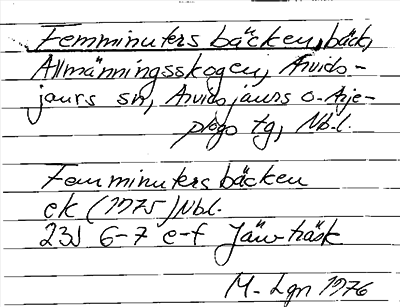 Femminuters bäcken, bäck,
Allmänningsskogen, Arvids-
jaurs sn, Arvidsjaurs o. Arje-
plogs tg, Nb.l.
Femminutersbäcken
ek (1975) Nbl.
23J 6-7 e-f Järvträsk
M. Lgn 1976